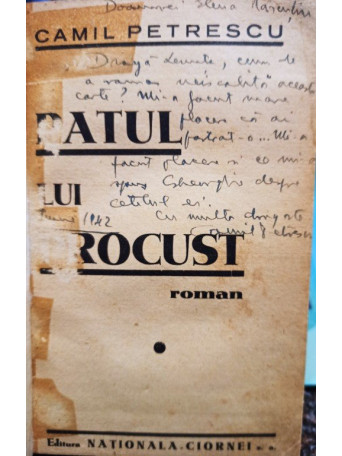 Doamnei Elena
CAMIL PETRESCU
„Dragă cum de
a rămas neiscălită această
carte? Mi-a făcut mare
PATUL plăcere că ai
păstrat-o... Mi-a
făcut plăcere și ce mi-a
spus Gheorghe despre
LUI cetitul ei.
1942 Cu multă dragoste
Camil Petrescu
PROCUST
roman
Editura NAȚIONALA-CIORNEI s. a.